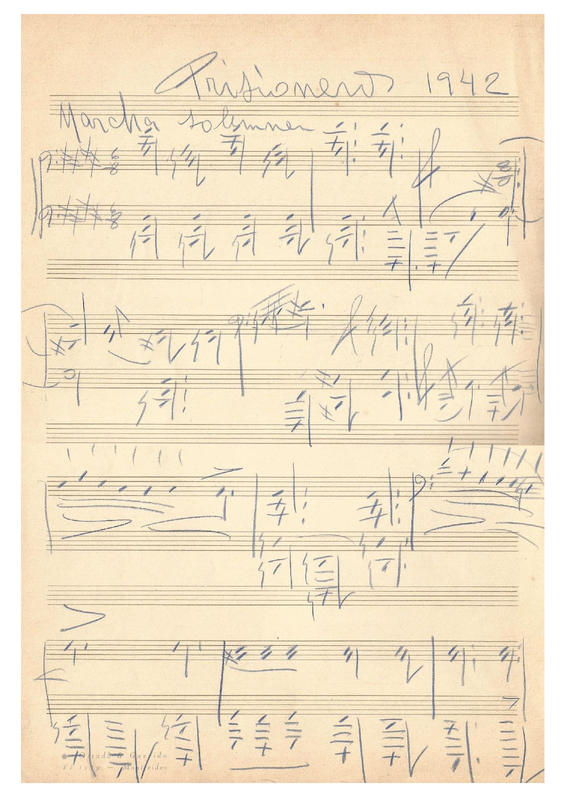 Prisioneros 1942
Marcha solemne